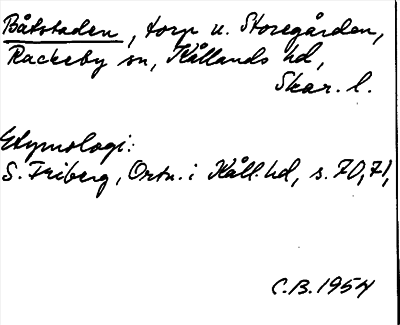 Båtstaden, torp u. Storegården,
Rackeby sn, Kållands hd,
Skar. l.
Etymologi:
S. Friberg, Ortn. i Kåll. hd, s. 70, 71,
C.B. 1954